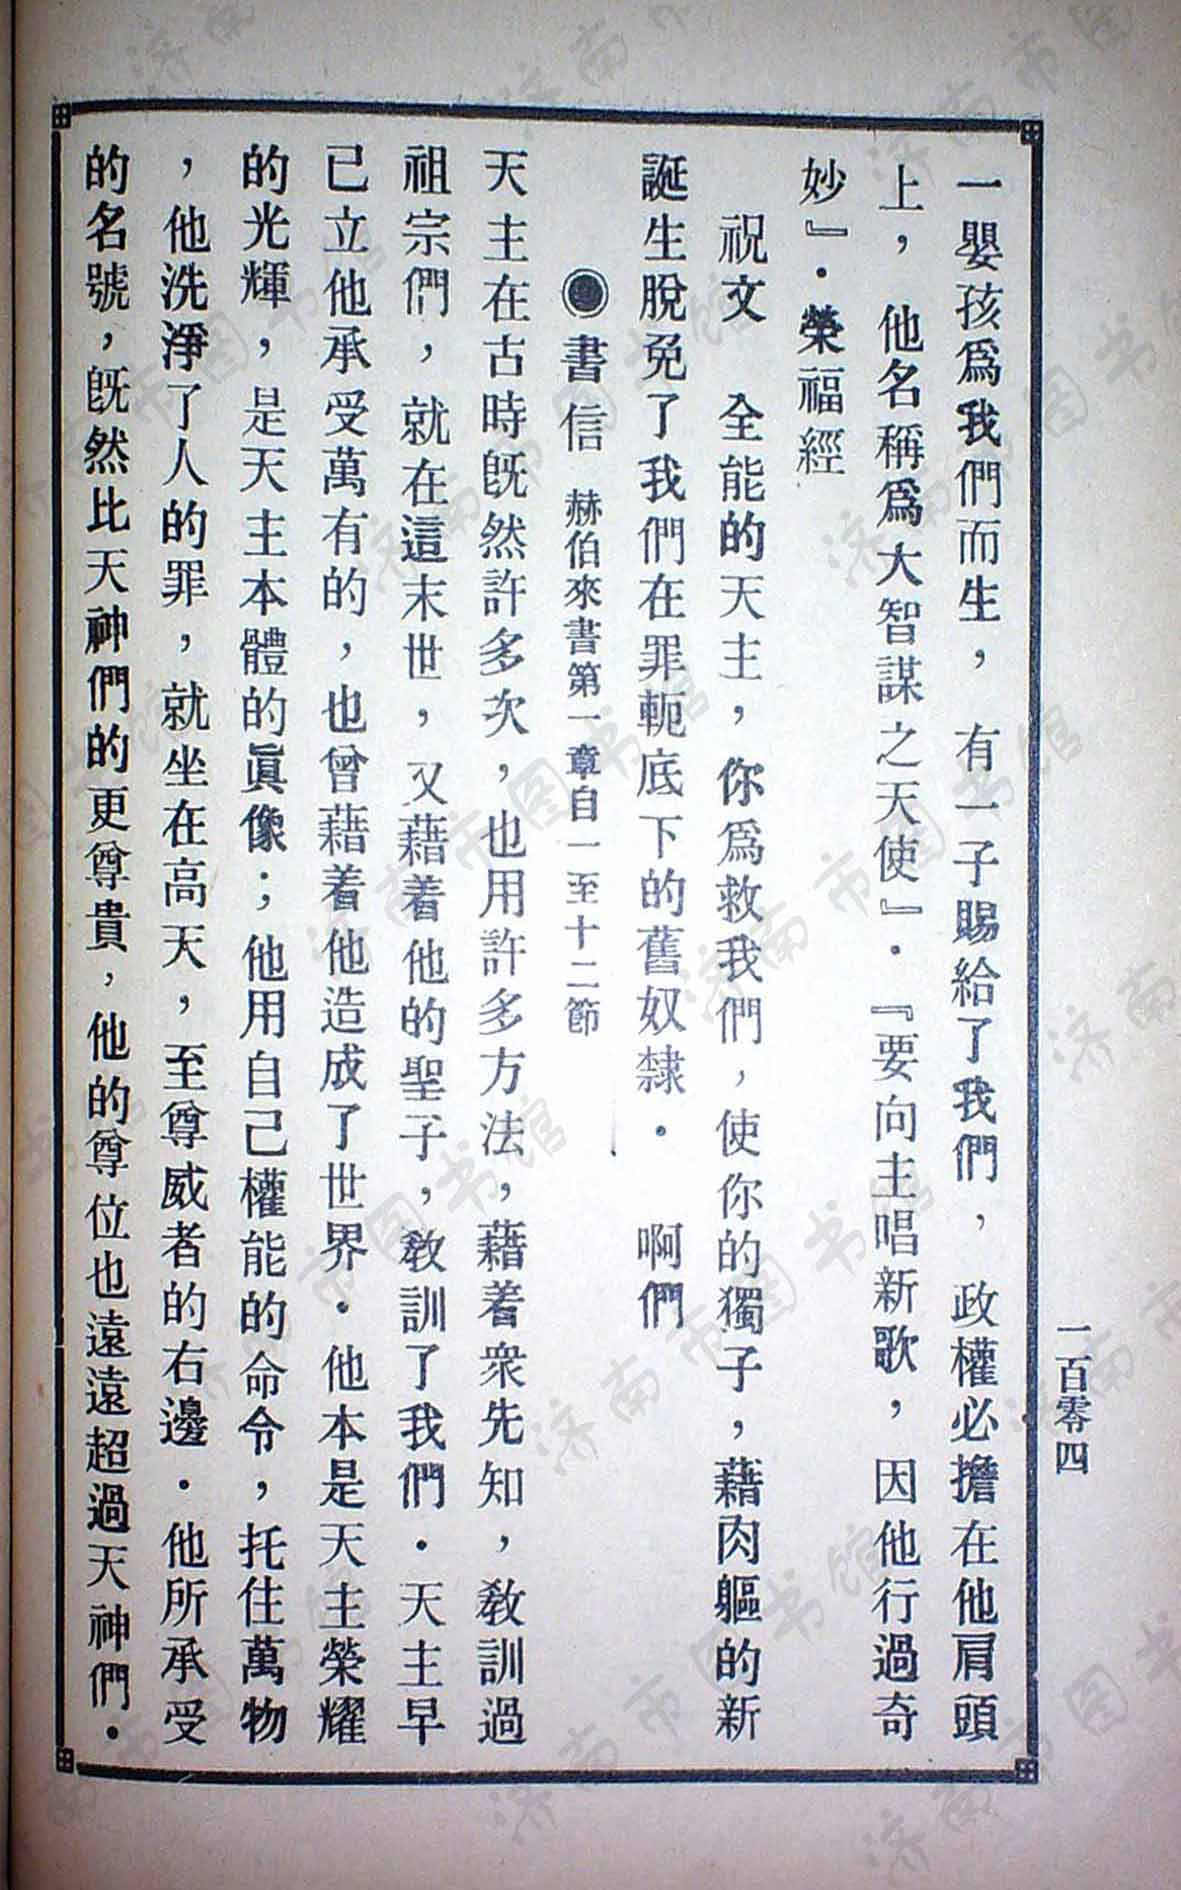 一百零四
一嬰孩爲我們而生，有一子賜給了我們，政權必擔在他肩頭
上，他名稱爲大智謀之天使』．『要向主唱新歌，因他行過奇
妙』．榮福經
祝文　全能的天主，你爲救我們，使你的獨子，藉肉軀的新
誕生脫免了我們在罪軛底下的舊奴隸．　啊們
◉書信　赫伯來書第一章自一至十二節
天主在古時旣然許多次，也用許多方法，藉着衆先知，教訓過
祖宗們，就在這末世，又藉着他的聖子，教訓了我們．天主早
已立他承受萬有的，也曾藉着他造成了世界．他本是天主榮耀
的光輝，是天主本體的眞像；他用自己權能的命令，托住萬物
，他洗淨了人的罪，就坐在高天，至尊威者的右邊．他所承受
的名號，旣然比天神們的更尊貴，他的尊位也遠遠超過天神們．
济南市图书馆